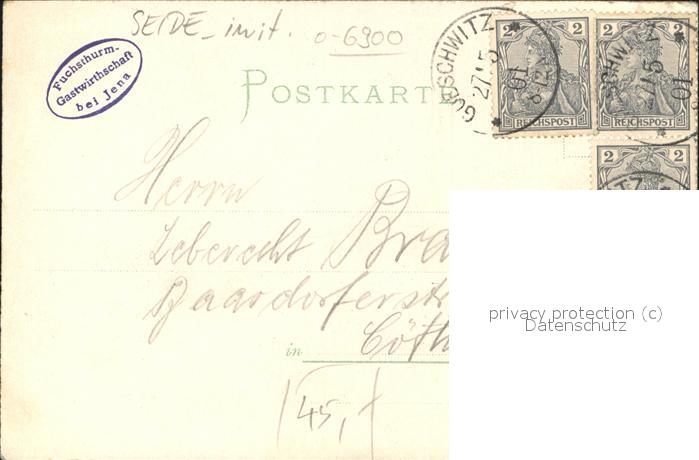 SEIDE-imit. o-6900
Fuchsthurm-
Gastwirthschaft
bei Jena
POSTKARTE
2 2
2 2
REICHSPOST REICHSPOST
2 2
27.5
01
Herrn
Leberecht Bra
Baasdorferstr
in Cöth
45,-
privacy protection (c)
Datenschutz